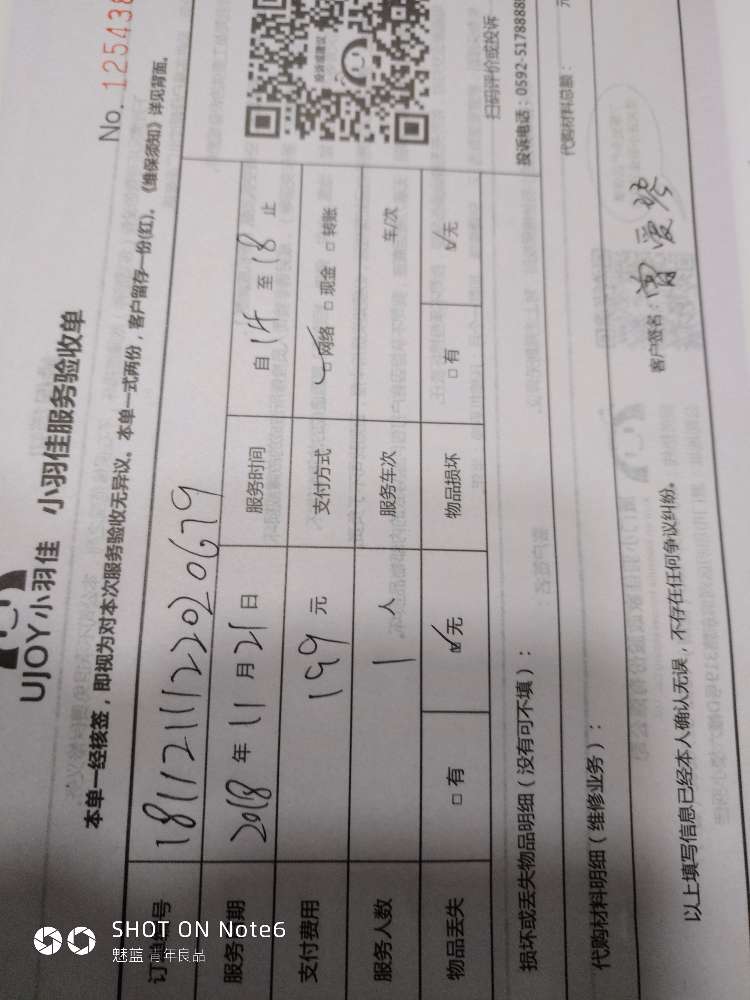 UJOY小羽佳 小羽佳服务验收单
No. 125438
本单一经核签，即视为对本次服务验收无异议。本单一式两份，客户留存一份(红)。《维保须知》详见背面。
181121112202020679
服务日期 2018 年 11 月 21 日 服务时间 自 14 至 18 止
支付费用 199 元 支付方式 ☑网络 □现金 □转账
服务人数 1 人 服务车次 车/次
物品丢失 □有 ☑无 物品损坏 □有 ☑无
投诉或建议
扫码评价或投诉
投诉电话：0592-5178888
损坏或丢失物品明细（没有可不填）：
代购材料明细（维修业务）： 代购材料总额： 元
以上填写信息已经本人确认无误，不存在任何争议纠纷。 客户签名：
SHOT ON Note6
魅蓝 青年良品